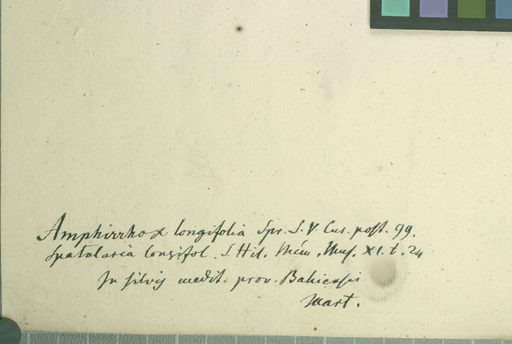 Amphirrhox longifolia Spr. S. V. Cur. post. 99.
Spatularia longifol. S. Hil. Mém. Mus. XI. t. 24
In silvis medit. prov. Bahiensis
Mart.